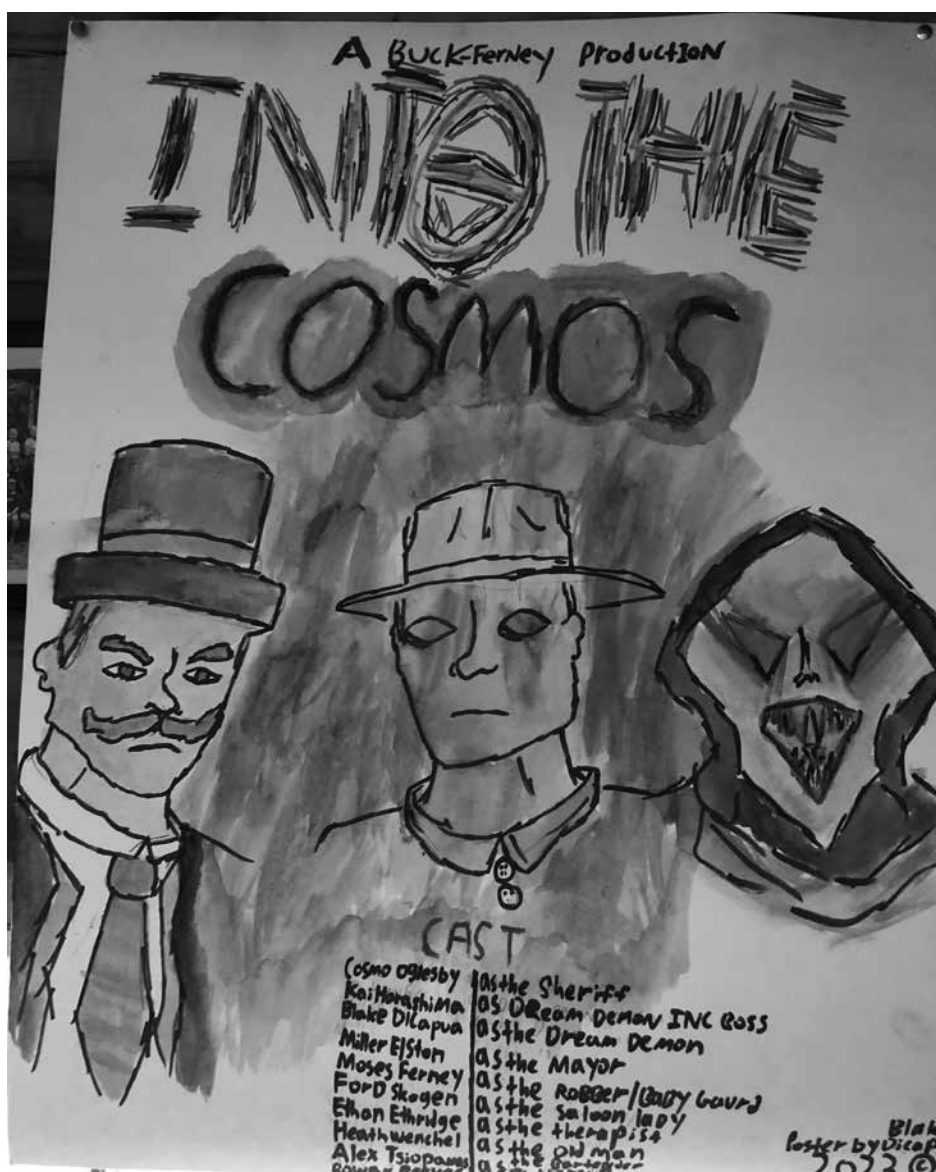 A BUCK-Ferney PRODUCTION
INTO THE
COSMOS
CAST
Cosmo Oglesby as the Sheriff
Kai Horashima as DReam DEMON INC BOSS
Blake DiCapua as the DReam DEMON
Miller Elston as the Mayor
Moses Ferney as the RoBBer/BODY Gaurd
FORD Skogen as the Saloon lady
Ethan Ethridge as the therapist
Heath wenchel as the old man
Alex as the Bartender
Blake
Poster by DiCap
2022 ©